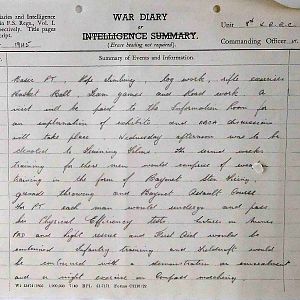 Diaries and Intelligence
in F.S. Regs., Vol. I.
respectively. Title pages
script.
1945
WAR DIARY
or
INTELLIGENCE SUMMARY.
(Erase heading not required).
Unit
Commanding Officer
Summary of Events and Information
Basic PT, Rope climbing, log work, rifle exercises
Basket Ball, Team games and Road work. A
visit will be paid to the Information Room for
an explanation of exhibits and ABCA discussions
will take place. Wednesday afternoon was to be
devoted to Training Films. The second weeks
training for these men would comprise of
training in the form of Bayonet
grenade throwing and Bayonet Assault Course
In PT each man would undergo and pass
his Physical Efficiency tests. Lectures in
PAD and First Aid would be
combined. Infantry training and Fieldcraft would
be combined with a demonstration on concealment
and a night exercise in Compass marching